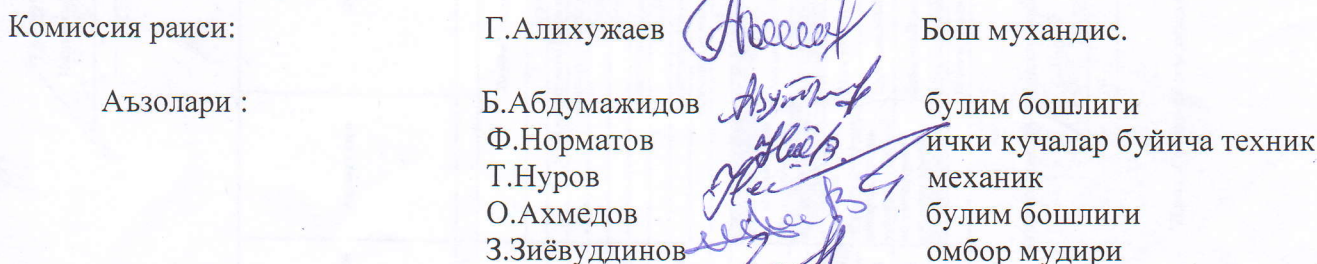 Комиссия раиси: Г.Алихужаев Бош мухандис.
Аъзолари : Б.Абдумажидов булим бошлиги
Ф.Норматов ички кучалар буйича техник
Т.Нуров механик
О.Ахмедов булим бошлиги
З.Зиёвуддинов омбор мудири